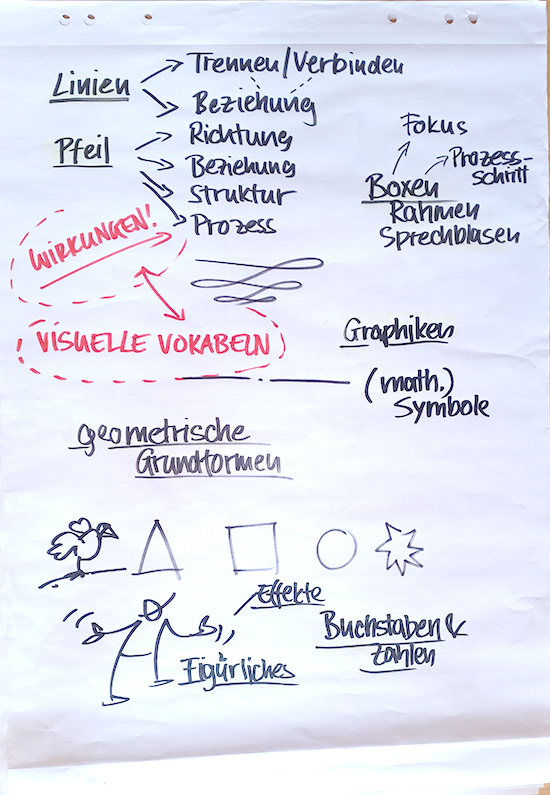 Linien
Trennen/Verbinden
Beziehung
Pfeil
Richtung
Beziehung
Struktur
Prozess
Fokus
Prozess-
schritt
Boxen
Rahmen
Sprechblasen
WIRKUNGEN!
VISUELLE VOKABELN
Graphiken
(math.)
Symbole
geometrische
Grundformen
Effekte
Figürliches
Buchstaben &
Zahlen